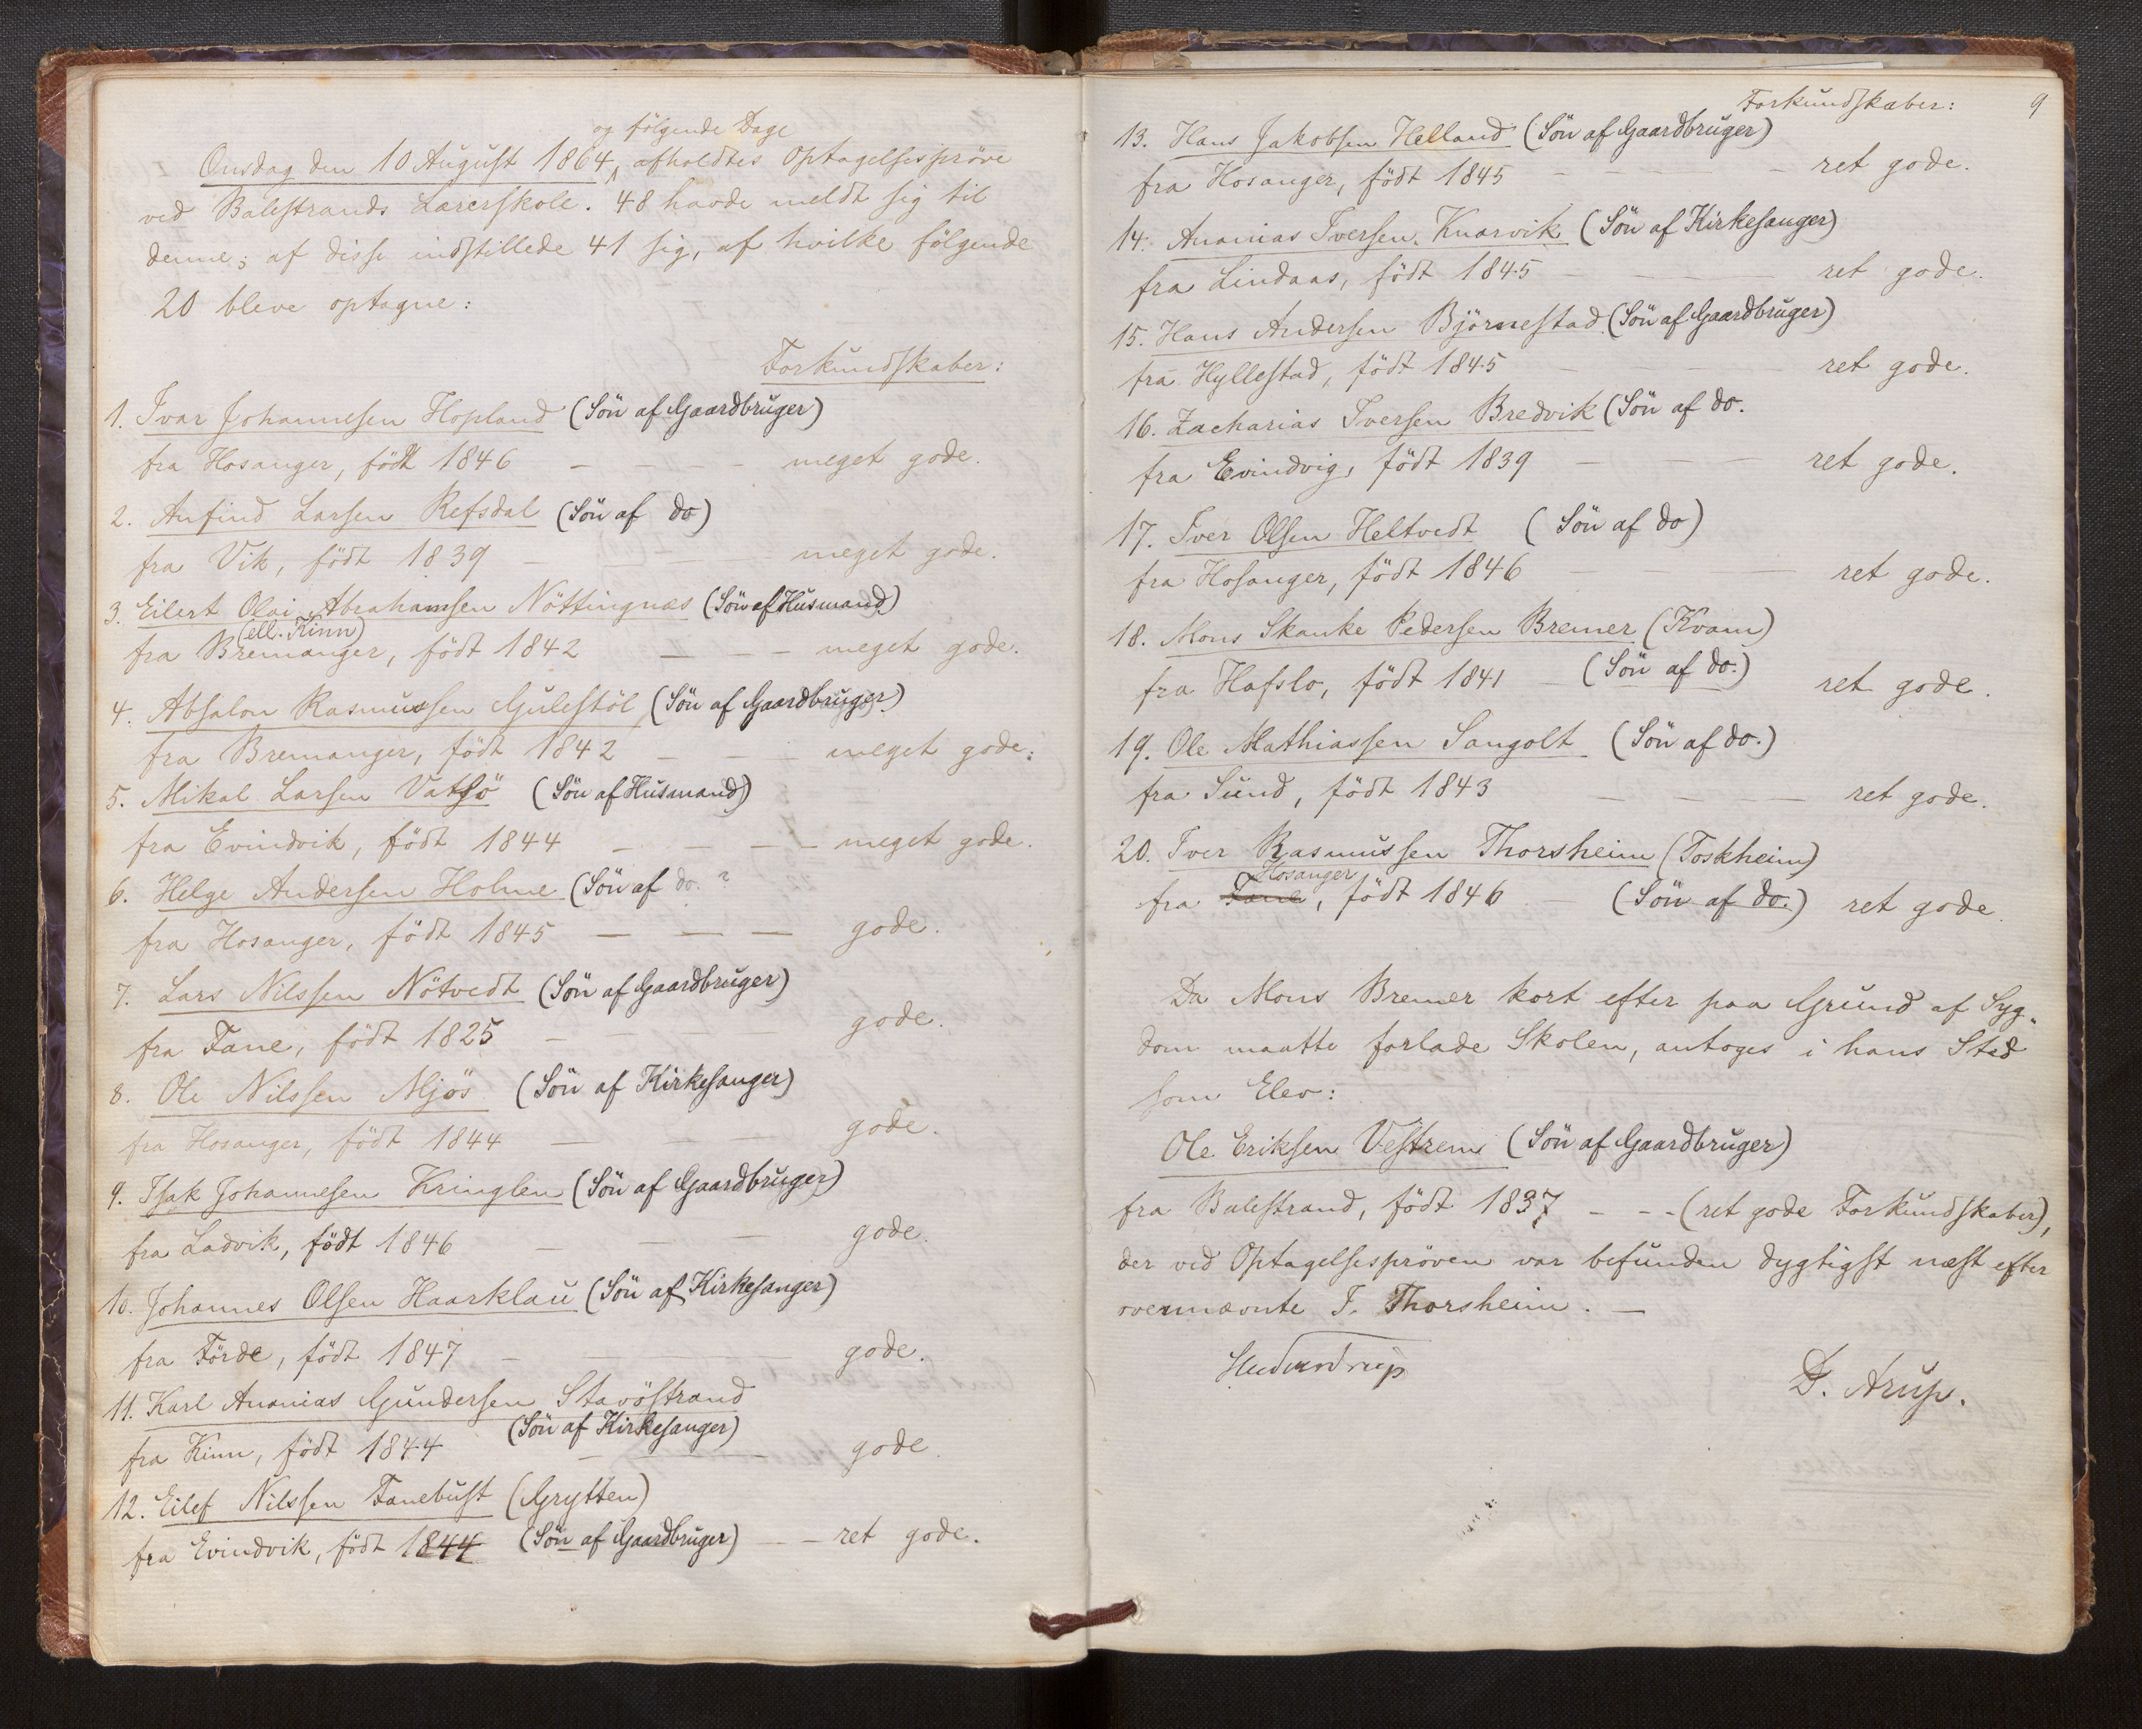 og følgende Dage
Onsdag den 10 August 1864 afholdtes Optagelsesprøve
ved Balestrands Lærerskole. 48 havde meldt sig til
denne; af disse indstillede 41 sig, af hvilke følgende
20 bleve optagne:
Forkundskaber:
1. Ivar Johannesen Hopland (Søn af Gaardbruger)
fra Hosanger, født 1846 — — — meget gode.
2. Anfind Larsen Refsdal (Søn af do)
fra Vik, født 1839 — — — meget gode.
3. Eilert Olai Abrahamsen Nøttingnæs (Søn af Husmand)
(ell. Kinn)
fra Bremanger, født 1842 — — — meget gode.
4. Absalon Rasmussen Gulestøl (Søn af Gaardbruger)
fra Bremanger, født 1842 — — — meget gode.
5. Mikal Larsen Vatsø (Søn af Husmand)
fra Evindvik, født 1844 — — — — meget gode.
6. Helge Andersen Holme (Søn af do. ?
fra Hosanger, født 1845 — — — gode.
7. Lars Nilssen Nøtvedt (Søn af Gaardbruger)
fra Fane, født 1825 — — — gode.
8. Ole Nilssen Mjøs (Søn af Kirkesanger)
fra Hosanger, født 1844 — — — gode.
9. Isak Johannesen Kringlen (Søn af Gaardbruger)
fra Ladvik, født 1846 — — — gode.
10. Johannes Olsen Haarklau (Søn af Kirkesanger)
fra Førde, født 1847 — — — gode.
11. Karl Ananias Gundersen Stavøstrand
(Søn af Kirkesanger)
fra Kinn, født 1844 — — — gode.
12. Eilef Nilssen Fanebust (Grytten)
fra Evindvik, født 1844 (Søn af Gaardbruger) — — ret gode.
Forkundskaber: 9
13. Hans Jakobsen Helland (Søn af Gaardbruger)
fra Hosanger, født 1845 — — — — ret gode.
14. Ananias Iversen Knarvik (Søn af Kirkesanger)
fra Lindaas, født 1845 — — — ret gode.
15. Hans Andersen Bjørnestad (Søn af Gaardbruger)
fra Hyllestad, født 1845 — — — ret gode.
16. Zacharias Iversen Bredvik (Søn af do.
fra Evindvig, født 1839 — — — ret gode.
17. Iver Olsen Heltvedt (Søn af do)
fra Hosanger, født 1846 — — — ret gode.
18. Mons Skanke Pedersen Bremer (Kvam)
fra Hafslo, født 1841 — (Søn af do.) ret gode.
19. Ole Mathiassen Sangolt (Søn af do.)
fra Sund, født 1843 — — — ret gode.
20. Iver Rasmussen Thorsheim (Toskheim)
Hosanger
fra Fane, født 1846 — (Søn af do.) ret gode.
Da Mons Bremer kort efter paa Grund af Syg-
dom maatte forlade Skolen, antoges i hans Sted
som Elev:
Ole Eriksen Vestrem (Søn af Gaardbruger)
fra Balestrand, født 1837 — — (ret gode Forkundskaber),
der ved Optagelsesprøven var befunden dygtigst næst efter
ovennævnte I. Thorsheim. —
D. Arup.